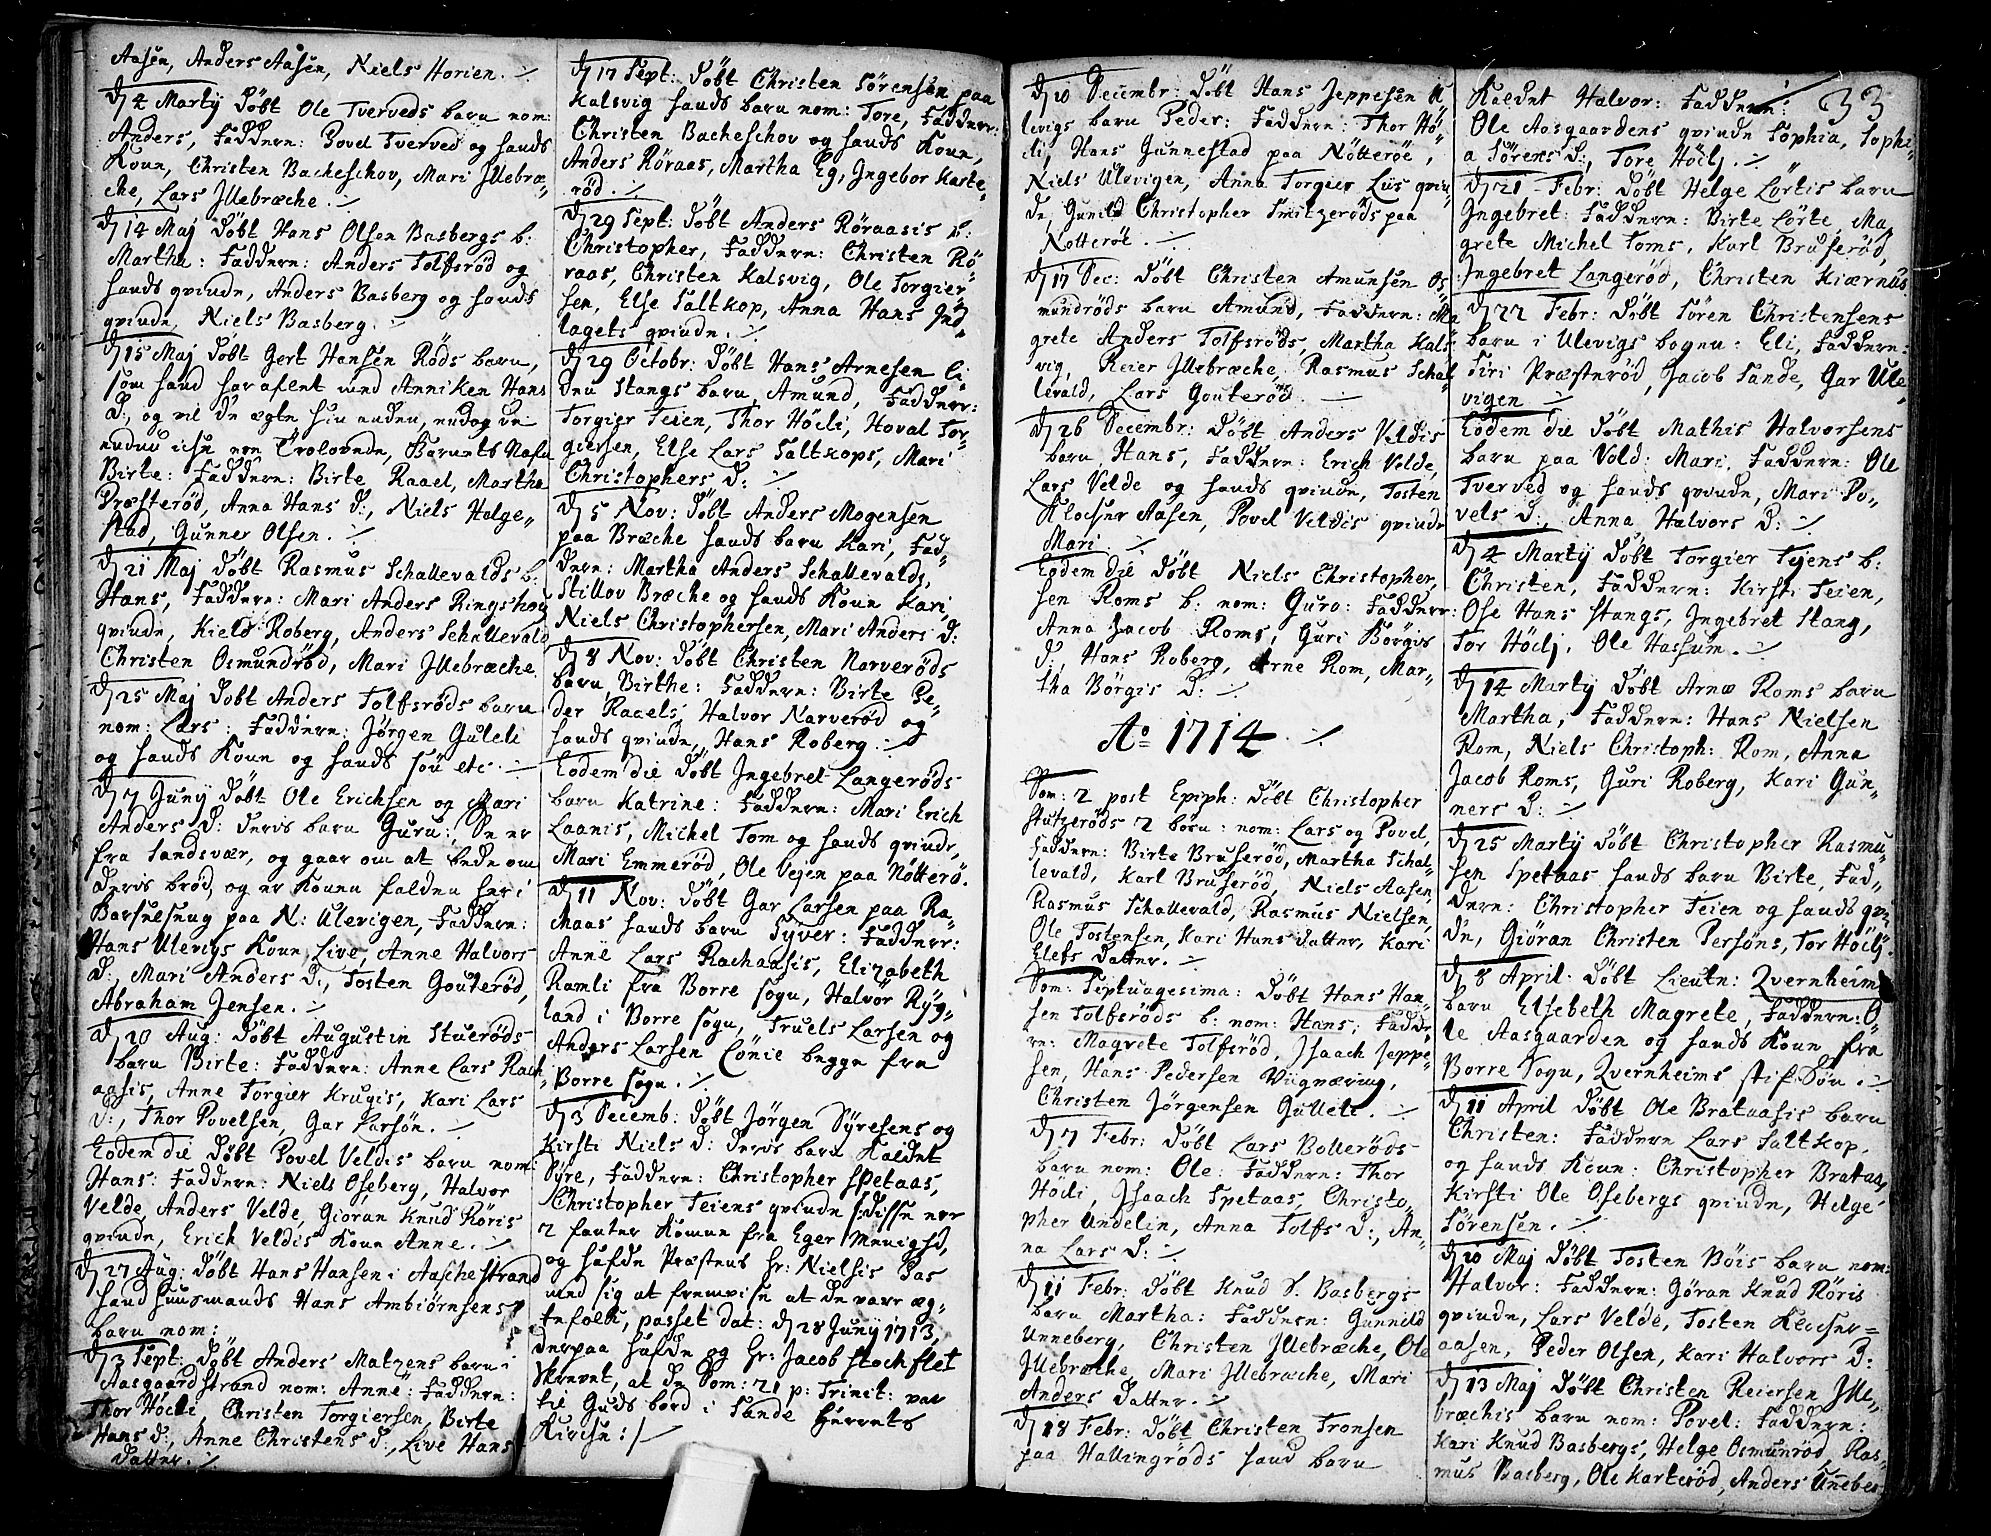 Aasen, Anders Aasen, Niels Horien. ./.
d 4 Martij Döbt Ole Tverveds barn nom:
Anders, Faddern: Povel Tverved og hands
Kone, Christen Bacheschov, Mari Jllebræ-
che, Lars Jllebræche. ./.
d 14 Maj Döbt Hans Olsen Basbergs b:
Martha: Faddern: Anders Tolfsröd og
hands qvinde, Anders Basberg og hands
qvinde, Niels Basberg. ./.
d 15 Maj Döbt Gert Hansen Röds barn,
som hand har aflet med Anniken Hans
D:, og vil de ægte hin anden, endog de
endnu iche ere Trolovede, Barnets Nafn
Birte: Faddern: Birte Raael, Martha
Præsteröd, Anna Hans D:, Niels Helge-
stad, Gunner Olsen. ./.
d 21 Maj Döbt Rasmus Schallevalds b:
Hans, Faddern: Mari Anders Ringshoug
qvinde, Kield Roberg, Anders Schallevald
Christen Osmundröd, Mari Jllebræche
d 25 Maj Döbt Anders Tolfsröds barn
nom: Lars: Faddern: Jörgen Guleli
og hands Kone og hands sön etc ./.
d 7 Junij Döbt Ole Erichsen og Mari
Anders D: deris barn Guru: De er
fra Sandsvær, og gaar om at bede om
deris bröd, og er Konen falden her i
Barselseng paa N: Ulevigen, Faddern:
Hans Ulevigs Kone Live, Anne Halvors
D:, Mari Anders D:, Tosten Gouteröd,
Abraham Jensen. ./.
d 20 Aug: Döbt Augustin Stueröds
barn Birte: Faddern: Anne Lars Rach-
aasis, Anne Torgier Krugis, Kari Lars
D:, Thor Povelsen, Gar Larsön. ./.
Eodem die Döbt Povel Veldis barn nom:
Hans: Faddern: Niels Oseberg, Halvor
Velde, Anders Velde, Gioran Knud Röris
qvinde, Erich Veldis Kone Anne. ./.
d 27 Aug: Döbt Hans Hansen i Aaschestrand
hand huusmands Hans Ambiörnsens
barn nom:
d 3 Sept: Döbt Anders Matzens barn i
Aasgaardstrand nom: Anne: Faddern:
Thor Höcli, Christen Torgiersen, Birte
Hans D:, Anne Christens D:, Live Hans
Datter. ./.
d 17 Sept: Döbt Christen Sörensen paa
Kalsvig hands barn nom: Tore, Faddern:
Christen Bacheschov og hands Kone,
Anders Röraas, Martha Eg, Ingebor Karte-
röd. ./.
d 29 Sept: Döbt Anders Röraasis b:
Christopher, Faddern: Christen Rö-
raas, Christen Kalsvig, Ole Torgier-
sen, Else Saltkop, Anna Hans Jnd-
lagets qvinde. ./.
d 29 Octobr: Döbt Hans Arnesen li-
den Stangs barn, Amund, Faddern:
Torgier Teien, Thor Höcli, Hoval Tor-
giersen, Else Lars Saltkops, Mari
Christophers D: ./.
d 5 Nov: Döbt Anders Mogensen
paa Bræche hands barn Kari, Fad-
dern: Martha Anders Schallevalds,
Stillov Bræche og hands Kone Kari,
Niels Christophersen, Mari Anders D:
d 8 Nov: Döbt Christen Narveröds
barn Birthe: Faddern: Birte Pe-
der Raaels, Halvor Narveröd og
hands qvinde, Hans Roberg ./.
Eodem die Döbt Jngebret Langeröds
barn Katrine: Faddern: Mari Erich
Laanis, Michel Tom og hands qvinde,
Mari Emmeröd, Ole Vejen paa Nötterö.
d 11 Nov: Döbt Gar Larsen paa Ra-
maas hands barn Syver: Faddern:
Anne Lars Rachaasis, Elizabeth
Ramli fra Borre sogn, Halvor Ryg-
land i Borre sogn, Truels Larsen og
Anders Larsen Lönie begge fra
Borre sogn. ./.
d 3 Decemb: Döbt Jörgen Syresens og
Kirsti Niels D: deris barn Kaldet
Syre, Faddern: Christopher Spetaas,
Christopher Teiens qvinde /:disse er
2 fanter komne fra Eger Menighd,
og hafde Præstens hr: Nielsis Pas
med sig at fremvise at de vare æg-
tefolk, passet dat: d 28 Junij 1713,
derpaa hafde og Hr: Jacob Stochflet
skrevet, at de Dom: 21 p: Trinit: var
til Guds bord i Sande Herrets
Kirche:/ ./.
d 10 Decembr: Döbt Hans Jeppesen U-
levigs barn Peder: Faddern: Thor Hö-
cli, Hans Gunnestad paa Nötteröe,
Niels Ulevigen, Anna Torgier Liis qvin-
de, Gunild Christopher Smitzeröds paa
Nötteröe. ./.
d 17 Dec: Döbt Christen Amunsen Os-
mundröds barn Amund, Faddern: Ma-
grete Anders Tolfsröds, Martha Kals-
vig, Reier Jllebræche, Rasmus Schal-
levald, Lars Gouteröd. ./.
d 26 Decembr: Döbt Anders Veldis
barn Hans, Faddern: Erich Velde,
Lars Velde og hands qvinde, Tosten
Klocher Aasen, Povel Veldis qvinde
Mari ./.
Eodem die Döbt Niels Christopher-
sen Roms b: nom: Guro: Faddern:
Anna Jacob Roms, Guri Börgis
D:, Hans Roberg, Arne Rom, Mar-
tha Börgis D: ./.
Ao 1714. ./.
Dom: 2 post Epiph: Döbt Christopher
Stutzeröds 2 börn: nom: Lars og Povel,
Faddern: Birte Bruseröd, Martha Schal-
levald, Karl Bruseröd, Niels Aasen,
Rasmus Schallevald, Rasmus Nielsen,
Ole Tostensen, Kari Hans datter, Kari
Elefs datter. ./.
Dom: Septuagesima: Döbt Hans Han-
sen Tolfsröds b: nom: Hans, Fadde-
rn: Magrete Tolfsröd, Jsaach Jeppe-
sen, Hans Pedersen Viignæring,
Christen Jörgensen Gulleli. ./.
d 7 Febr: Döbt Lars Bolleröds
barn nom: Ole: Faddern: Thor
Höcli, Jsaach Spetaas, Christo-
pher Undelin, Anna Tolfs D:, An-
na Lars D: ./.
d 11 Febr: Döbt Knud S. Basbergs
barn Martha: Faddern: Gunnild
Unneberg, Christen Jllebræche, Ole
Jllebræche, Mari Jllebræche, Mari
Anders datter. ./.
d 18 Febr: Döbt Christen Tronsen
paa Hallingröds hand barn
33
Kaldet Halvor: Faddern:
Ole Aasgaardens qvinde Sophia, Sophi-
a Sörens D:, Tore Höclj. ./.
d 21 Febr: Döbt Helge Lörtis barn
Jngebret: Faddern: Birte Lörte, Ma-
grete Michel Toms, Karl Bruseröd,
Jngebret Langeröd, Christen Kiærnes
d 22 Febr: Döbt Sören Christensens
barn i Ulevigs bogen: Eli, Faddern:
Siri Præsteröd, Jacob Sande, Gar Ule-
vigen ./.
Eodem die Döbt Mathis Halvorsens
barn paa Vold: Mari. Faddern: Ole
Tverved og hands qvinde, Mari Po-
vels D:, Anna Halvors D: ./.
d 4 Martij Döbt Torgier Tejens b:
Christen, Faddern: Kirsti Teien,
Ose Hans Stangs, Jngebret Stang,
Tor Höclj, Ole Hassum. ./.
d 14 Martij Döbt Arnæ Roms barn
Martha, Faddern: Hans Nielsen
Rom, Niels Christoph: Rom, Anna
Jacob Roms, Guri Roberg, Kari Gun-
ners D: ./.
d 25 Martij Döbt Christopher Rasmu-
sen Spetaas hands barn Birte, Fad-
dern: Christopher Teien og hands qvin-
de, Giöran Christen Persöns, Tor Höclj.
d 8 April: Döbt Lieutn: Qvernheims
barn Elsebeth Magrete, Faddern: O-
le Aasgaarden og hands Kone fra
Borre Sogn, Qvernheims stif Sön. ./.
d 11 April Döbt Ole Brataasis barn
Christen: Faddern Lars Saltkop,
og hands Kone: Christopher Brataas,
Kirsti Ole Osebergs qvinde, Helge
Sörensen. ./.
d 10 Maj Döbt Tosten Böis barn nom:
Halvor: Faddern: Göran Knud Röris
qvinde, Lars Velde, Tosten Klocher-
aasen, Peder Olsen, Kari Halvors D:
d 13 Maj Döbt Christen Reiersen Jlle-
bræchis barn nom: Povel: Faddern:
Kari Knud Basbergs, Helge Osmunröd, Ras-
mus Basberg, Ole Karteröd, Anders Unneber